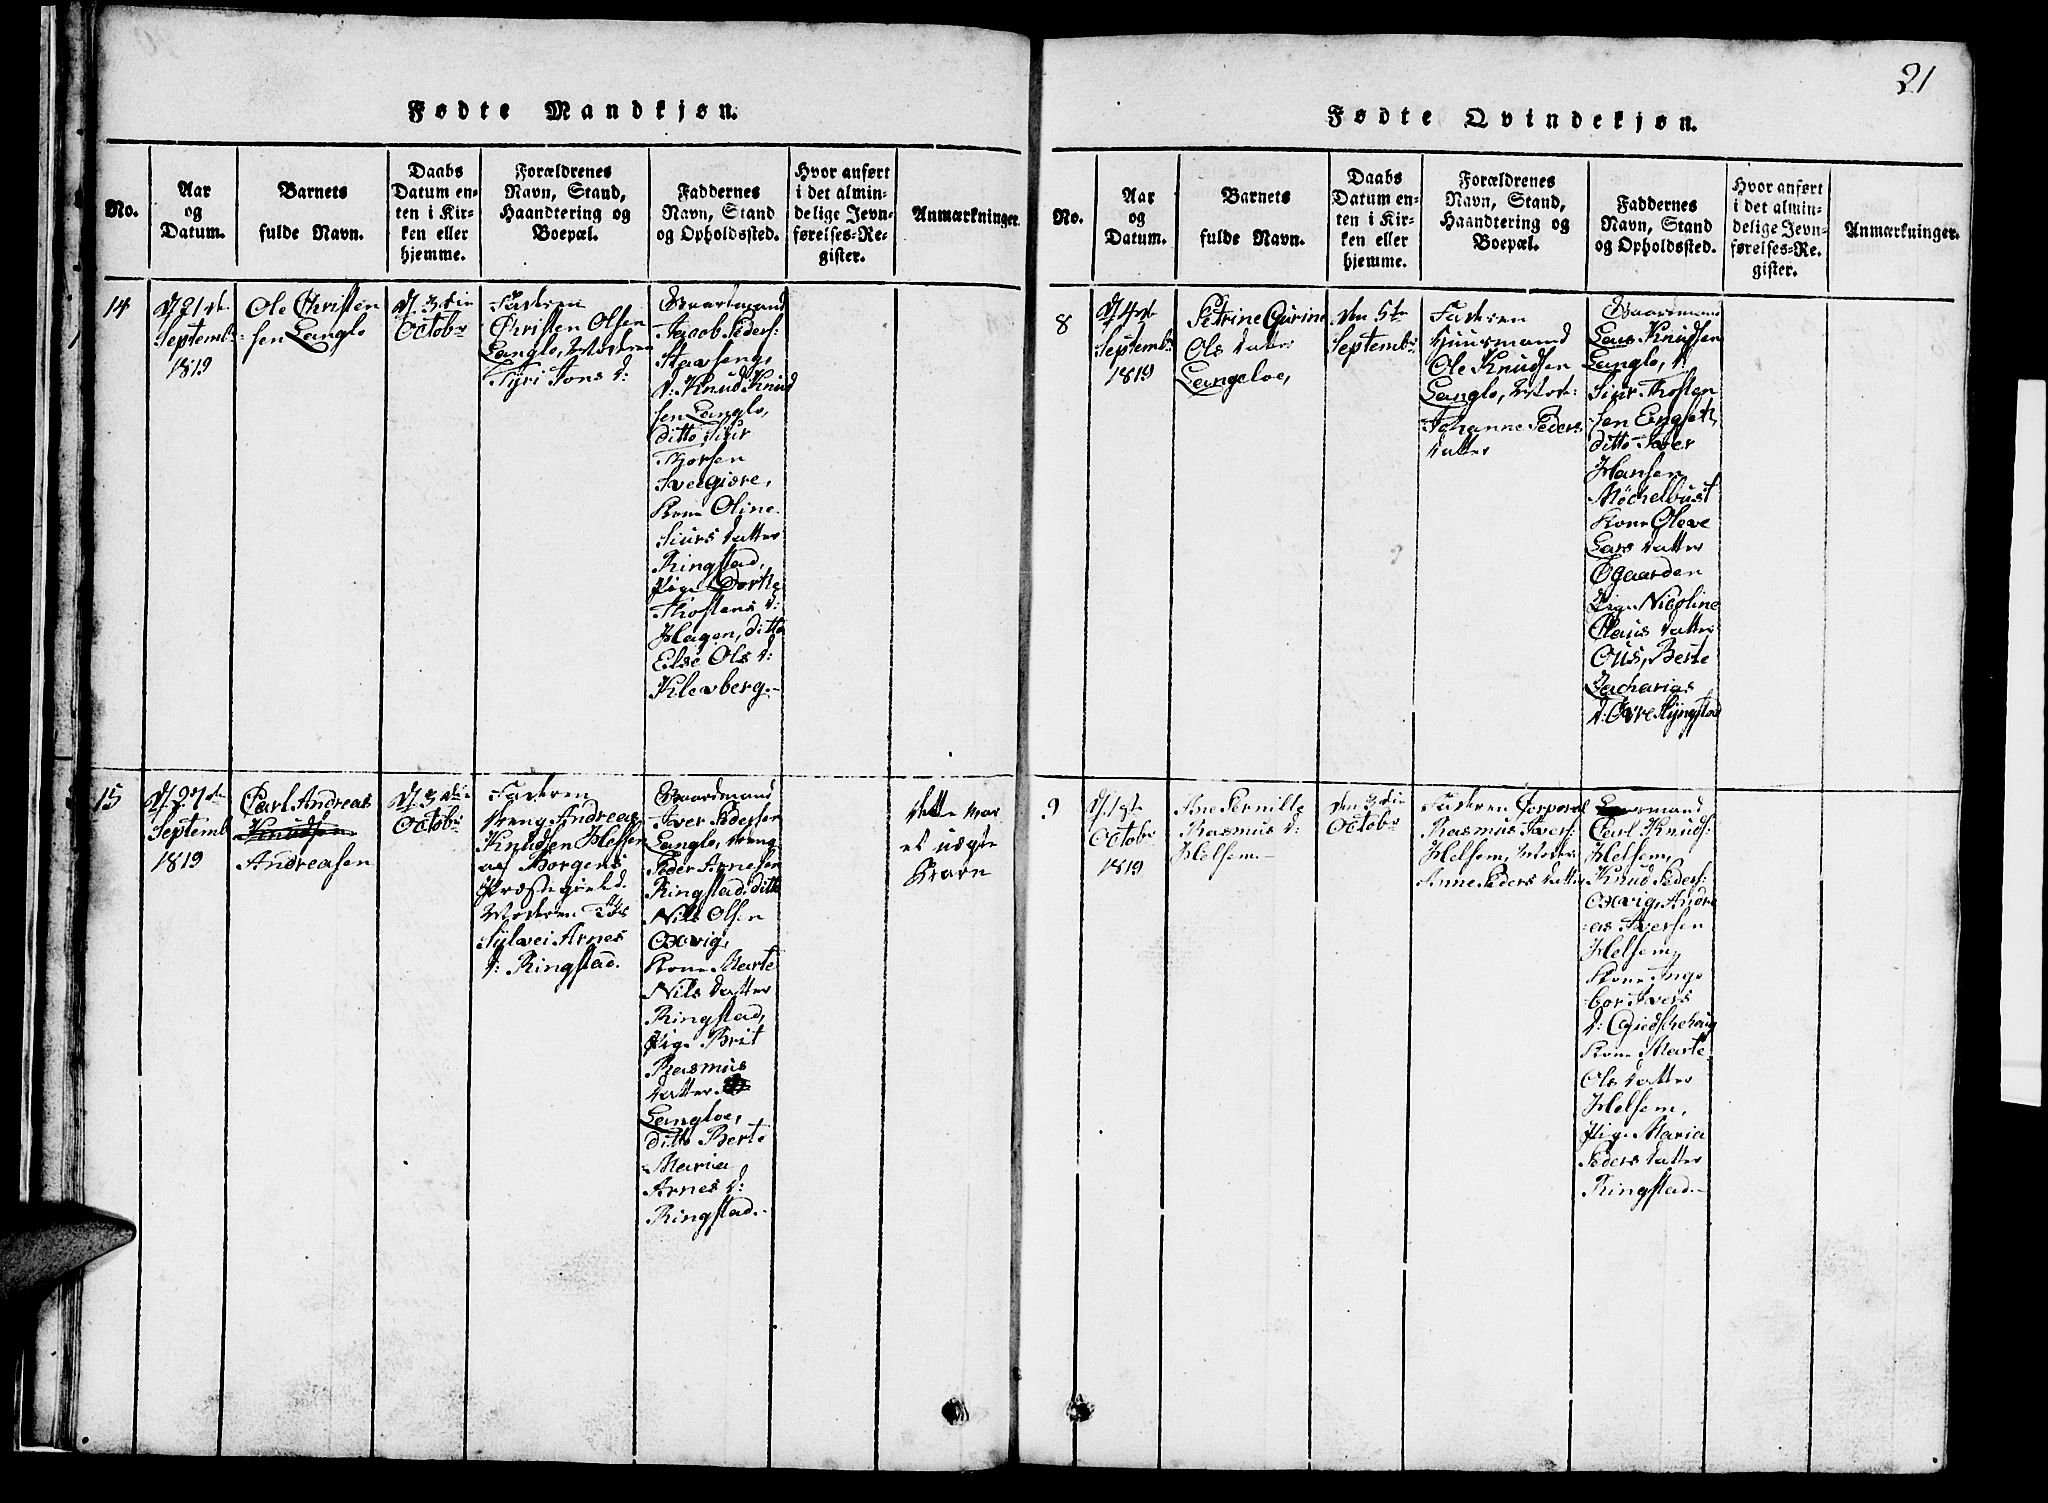 21
Fødte Mandkjøn.
No.
Aar
og
Datum.
Barnets
fulde Navn.
Daabs
Datum en-
ten i Kir-
ken eller
hjemme.
Forældrenes
Navn, Stand,
Haandtering og
Boepæl.
Faddernes
Navn, Stand
og Opholdssted.
Hvor anført
i det almin-
delige Jevn-
førelses-Re-
gister.
Anmærkninger.
14
d. 21de
Septembr
1819
Ole Christen
sen Langlo
d. 3die
Octobr
Faderen
Christen Olsen
Langlo, Moderen
Tyri Jons d:
Gaardmand
Jacob Peders:
Stavseng,
d: Knud Knud
sen Langlo,
ditto Siur
Thorsen
Kone Oline
Siurs datter
Ringstad,
Pige Dorthe
Thostens d:
Hagen, ditto
Else Ols d:
Klevberg.
15
d. 27de
Septemb
1819
Carl Andreas
Knudsen
Andreasen
d. 3die
Octobr
Faderen
Dreng Andreas
Knudsen Helsem
af Borgens
Præstegield.
Moderen
Sylvei Arnes
d: Ringstad.
Gaardmand
Iver Pedersen
Langlo, Dreng
Peder Arnesen
Ringstad, ditto
Nils Olsen
Oxvig,
Kone Marte
Nils datter
Ringstad,
Pige Brit
Rasmus
datter
Langloe,
ditto Berte
Maria
Arnes d:
Ringstad.
dette var
et uægte
Barn
Fødte Qvindekjøn.
No.
Aar
og
Datum.
Barnets
fulde Navn.
Daabs
Datum en-
ten i Kir-
ken eller
hjemme.
Forældrenes
Navn, Stand,
Haandtering og
Boepæl.
Faddernes
Navn, Stand
og Opholdssted.
Hvor anført
i det almin-
delige Jevn-
førelses-Re-
gister.
Anmærkninger.
8
d. 4de
Septembr
1819
Petrine Gurine
Ols datter
Langeloe,
den 5te
Septembr
Faderen
Huusmand
Ole Knudsen
Langlo, Mod:
Johanne Peders
datter
Gaardmand
Lars Knudsen
Langlo, d:
Siur Thosten
sen Engset,
ditto Iver
Hansen
Mochelbust
Kone Olave
Lars datter
Øgaarden
Pige Nicoline
Claus datter
Ous, Berte
Zacharias
d: Øvre Slyngstad
9
d. 1ste
Octobr
1819
Ane Pernille
Rasmus d:
Helsem.
den 3die
Octobr
Faderen Corporal
Rasmus Ivers:
Helsem, Moder
Anne Peders datter
Gaardmand
Carl Knuds:
Helsem,
Knud Peders:
Oxvig, Andre
as Iversen
Helsem,
Kone Inge
bor Ivers
d: Giedschehaug
Kone Marte
Ols datter
Helsem,
Pige Maria
Peders datter
Ringstad.